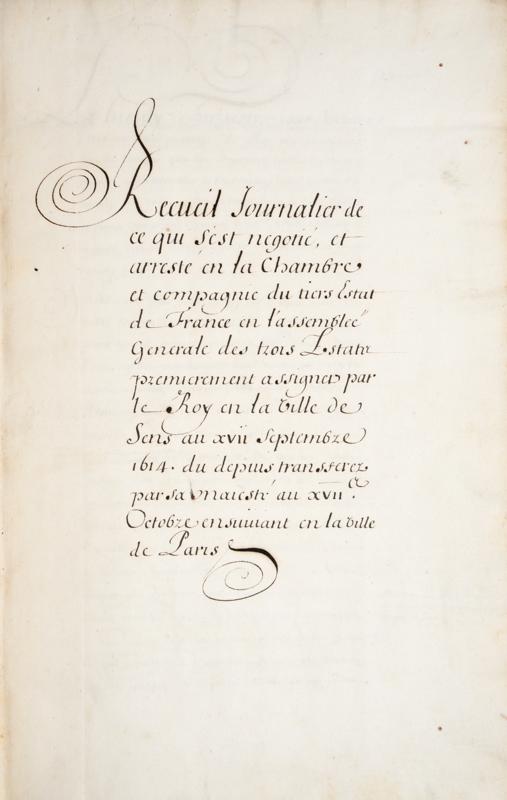 Recueil Journalier de
ce qui s'est negotié, et
arresté en la Chambre
et compagnie du tiers Estat
de France en l'assemblée
Generale des trois Estatz
premierement assignez par
le Roy en la Ville de
Sens au xvii Septembre
1614. du depuis transferez
par sa Maiesté au xvii.e
Octobre ensuiuant en la Ville
de Paris